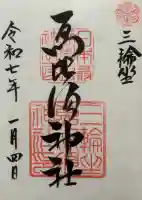 三輪坐
恵比須神社
令和七年 一月四日